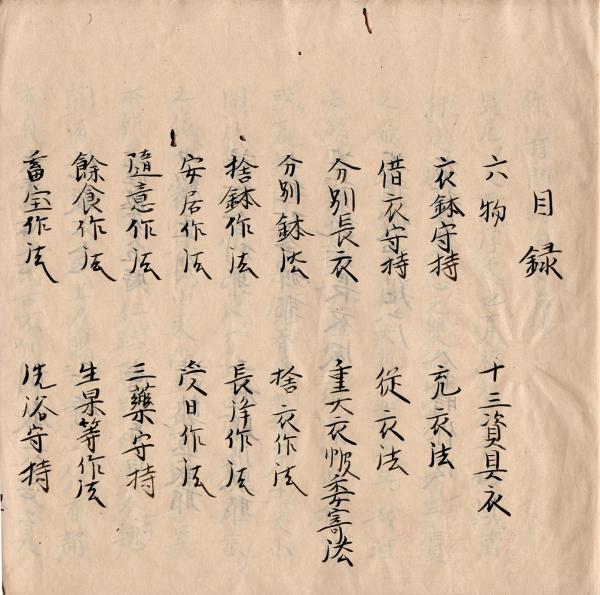 目録
六物　十三資具衣
衣鉢守持　充衣法
借衣守持　従衣法
分別長衣　重大衣帔委寄法
分別鉢法　捨衣作法
捨鉢作法　長浄作法
安居作法　受日作法
隨意作法　三藥守持
餘食作法　生果等作法
畜宝作法　洗浴守持